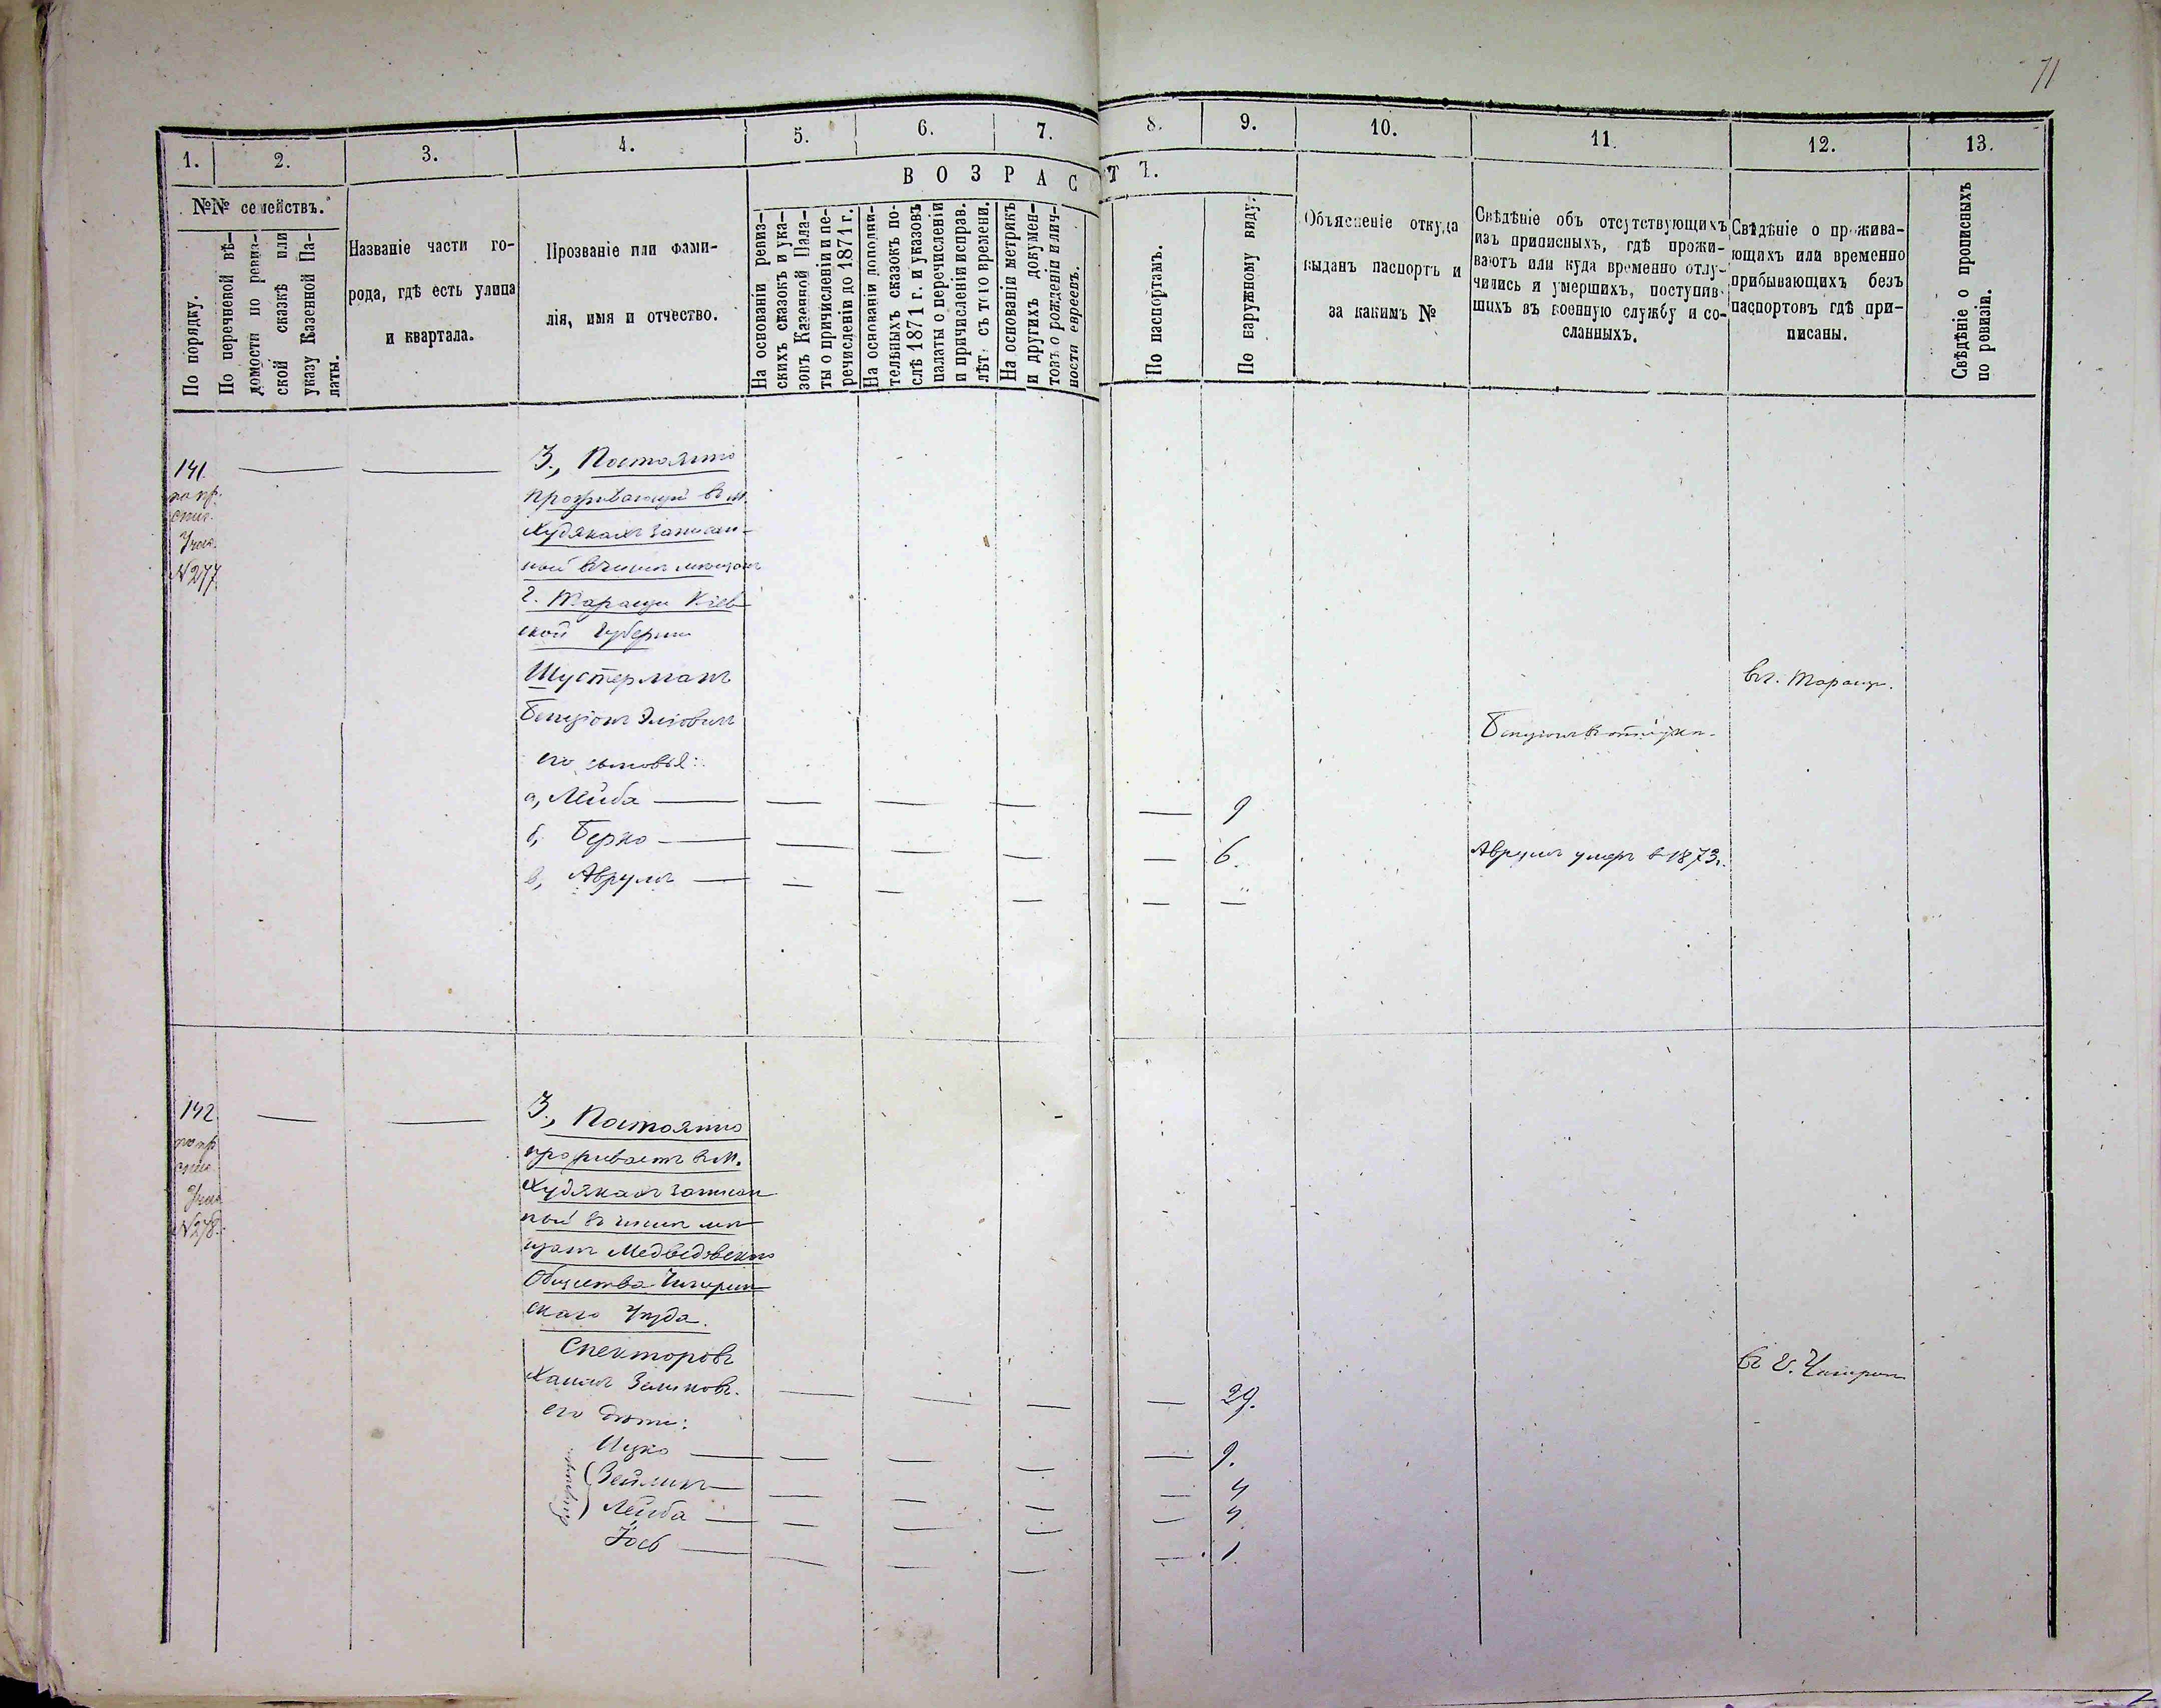 71
1. 2. 3. 4. 5. 6. 7. 8. 9. 10. 11. 12. 13.
ВОЗРАСТЪ.
№№ семействъ.
По порядку.
По перечневой вѣ-
домости по ревиз-
ской сказкѣ или
указу Казенной Па-
латы.
Названіе части го-
рода, гдѣ есть улица
и квартала.
Прозваніе или фами-
лія, имя и отчество.
На основаніи ревиз-
скихъ сказокъ и ука-
зовъ Казенной Пала-
ты о причисленіи и пе-
речисленіи до 1871 г.
На основаніи дополни-
тельныхъ сказокъ по-
слѣ 1871 г. и указовъ
палаты о перечисленіи
и причисленіи исправ.
лѣт. съ того времени.
На основаніи метрикъ
и другихъ докумен-
товъ о рожденіи и лич-
ности евреевъ.
По паспортамъ.
По наружному виду.
Объясненіе откуда
выданъ паспортъ и
за какимъ №
Свѣдѣніе объ отсутствующихъ
изъ приписныхъ, гдѣ прожи-
ваютъ или куда временно отлу-
чились и умершихъ, поступив-
шихъ въ военную службу и со-
сланныхъ.
Свѣдѣніе о прожива-
ющихъ или временно
прибывающихъ безъ
паспортовъ гдѣ при-
писаны.
Свѣдѣніе о прописныхъ
по ревизіи.
141.
по пр.
спис.
№277
3., Постоянно
проживающій въ м.
Худякахъ записан-
ной въ числѣ мѣщанъ
г. Таращи Кіев-
ской Губерніи
Шустерманъ
въ г. Тараще.
Бенціонъ
Бенціонъ
его сыновья:
а, Лейба — — — — — 9
б, Берко — — — — — 6.
Аврумъ умеръ въ 1873г.
в, Аврумъ — — — — — —
142.
по пр.
спис.
№278.
3., Постоянно
проживаетъ въ м.
Худякахъ записан
ной въ числѣ мѣ
щанъ Медведовскаго
Общества Чигирин
скаго Уѣзда.
Спекторовъ
въ г. Чигирин
Хаимъ Зельковъ. — — — — 29.
его дѣти:
Ицко — — — — — 9.
близнецы
Зейликъ — — — — — 4
Лейба — — — — — 4.
Іось — — — — — 1.